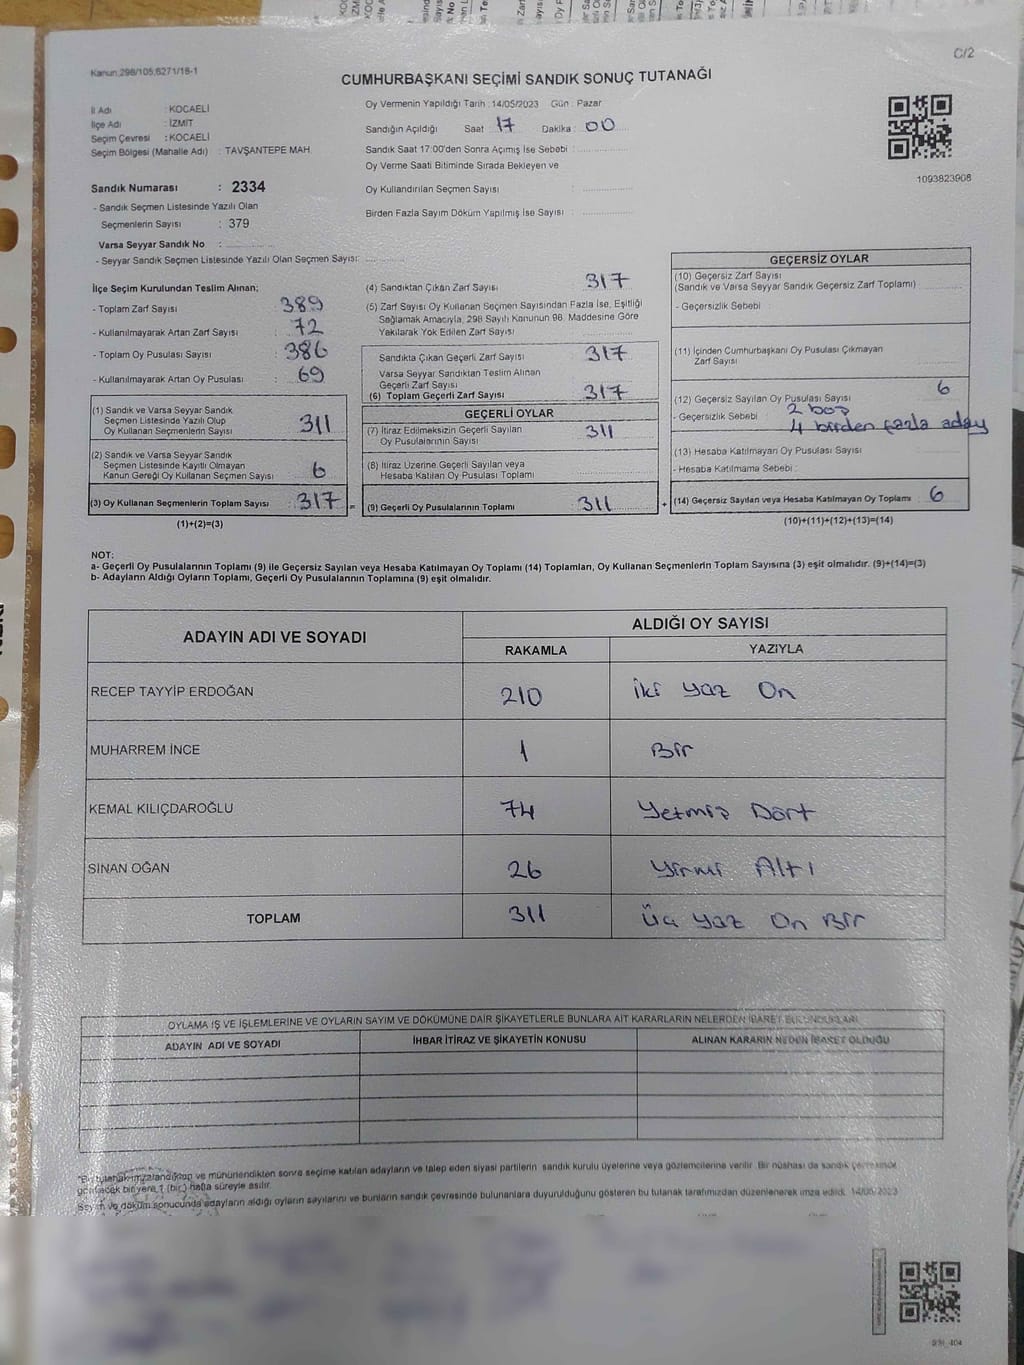 C/2
Kanun:298/105;6271/18-1
CUMHURBAŞKANI SEÇİMİ SANDIK SONUÇ TUTANAĞI
İl Adı : KOCAELİ
İlçe Adı : İZMİT
Seçim Çevresi : KOCAELİ
Seçim Bölgesi (Mahalle Adı) : TAVŞANTEPE MAH.
Oy Vermenin Yapıldığı Tarih : 14/05/2023 Gün : Pazar
Sandığın Açıldığı Saat : 17 Dakika : 00
Sandık Saat 17:00'den Sonra Açımış İse Sebebi :
Oy Verme Saati Bitiminde Sırada Bekleyen ve
Oy Kullandırılan Seçmen Sayısı :
Birden Fazla Sayım Döküm Yapılmış İse Sayısı :
1093823908
Sandık Numarası : 2334
- Sandık Seçmen Listesinde Yazılı Olan
Seçmenlerin Sayısı : 379
Varsa Seyyar Sandık No :
- Seyyar Sandık Seçmen Listesinde Yazılı Olan Seçmen Sayısı:
İlçe Seçim Kurulundan Teslim Alınan;
- Toplam Zarf Sayısı : 389
- Kullanılmayarak Artan Zarf Sayısı : 72
- Toplam Oy Pusulası Sayısı : 386
- Kullanılmayarak Artan Oy Pusulası : 69
(1) Sandık ve Varsa Seyyar Sandık
Seçmen Listesinde Yazılı Olup
Oy Kullanan Seçmenlerin Sayısı : 311
(2) Sandık ve Varsa Seyyar Sandık
Seçmen Listesinde Kayıtlı Olmayan
Kanun Gereği Oy Kullanan Seçmen Sayısı : 6
(3) Oy Kullanan Seçmenlerin Toplam Sayısı : 317
(1)+(2)=(3)
(4) Sandıktan Çıkan Zarf Sayısı : 317
(5) Zarf Sayısı Oy Kullanan Seçmen Sayısından Fazla İse, Eşitliği
Sağlamak Amacıyla, 298 Sayılı Kanunun 98. Maddesine Göre
Yakılarak Yok Edilen Zarf Sayısı :
Sandıkta Çıkan Geçerli Zarf Sayısı : 317
Varsa Seyyar Sandıktan Teslim Alınan
Geçerli Zarf Sayısı :
(6) Toplam Geçerli Zarf Sayısı : 317
GEÇERLİ OYLAR
(7) İtiraz Edilmeksizin Geçerli Sayılan
Oy Pusulalarının Sayısı : 311
(8) İtiraz Üzerine Geçerli Sayılan veya
Hesaba Katılan Oy Pusulası Toplamı :
= (9) Geçerli Oy Pusulalarının Toplamı : 311
GEÇERSİZ OYLAR
(10) Geçersiz Zarf Sayısı
(Sandık ve Varsa Seyyar Sandık Geçersiz Zarf Toplamı) :
- Geçersizlik Sebebi :
(11) İçinden Cumhurbaşkanı Oy Pusulası Çıkmayan
Zarf Sayısı :
(12) Geçersiz Sayılan Oy Pusulası Sayısı : 6
- Geçersizlik Sebebi : 2 boş
4 birden fazla aday
(13) Hesaba Katılmayan Oy Pusulası Sayısı :
- Hesaba Katılmama Sebebi :
+ (14) Geçersiz Sayılan veya Hesaba Katılmayan Oy Toplamı : 6
(10)+(11)+(12)+(13)=(14)
NOT:
a- Geçerli Oy Pusulalarının Toplamı (9) ile Geçersiz Sayılan veya Hesaba Katılmayan Oy Toplamı (14) Toplamları, Oy Kullanan Seçmenlerin Toplam Sayısına (3) eşit olmalıdır. (9)+(14)=(3)
b- Adayların Aldığı Oyların Toplamı, Geçerli Oy Pusulalarının Toplamına (9) eşit olmalıdır.
ADAYIN ADI VE SOYADI
ALDIĞI OY SAYISI
RAKAMLA YAZIYLA
RECEP TAYYİP ERDOĞAN 210 İki yüz On
MUHARREM İNCE 1 Bir
KEMAL KILIÇDAROĞLU 74 Yetmiş Dört
SİNAN OĞAN 26 Yirmi Altı
TOPLAM 311 Üç yüz On Bir
OYLAMA İŞ VE İŞLEMLERİNE VE OYLARIN SAYIM VE DÖKÜMÜNE DAİR ŞİKAYETLERLE BUNLARA AİT KARARLARIN NELERDEN İBARET BULUNDUKLARI
ADAYIN ADI VE SOYADI İHBAR İTİRAZ VE ŞİKAYETİN KONUSU ALINAN KARARIN NEDEN İBARET OLDUĞU
"Bu tutanak imzalandıktan ve mühürlendikten sonra seçime katılan adayların ve talep eden siyasi partilerin sandık kurulu üyelerine veya gözlemcilerine verilir. Bir nüshası da sandık çevresinde
görülecek bir yere 1 (bir) hafta süreyle asılır.
Sayım ve döküm sonucunda adayların aldığı oyların sayılarını ve bunların sandık çevresinde bulunanlara duyurulduğunu gösteren bu tutanak tarafımızdan düzenlenerek imza edildi. 14/05/2023